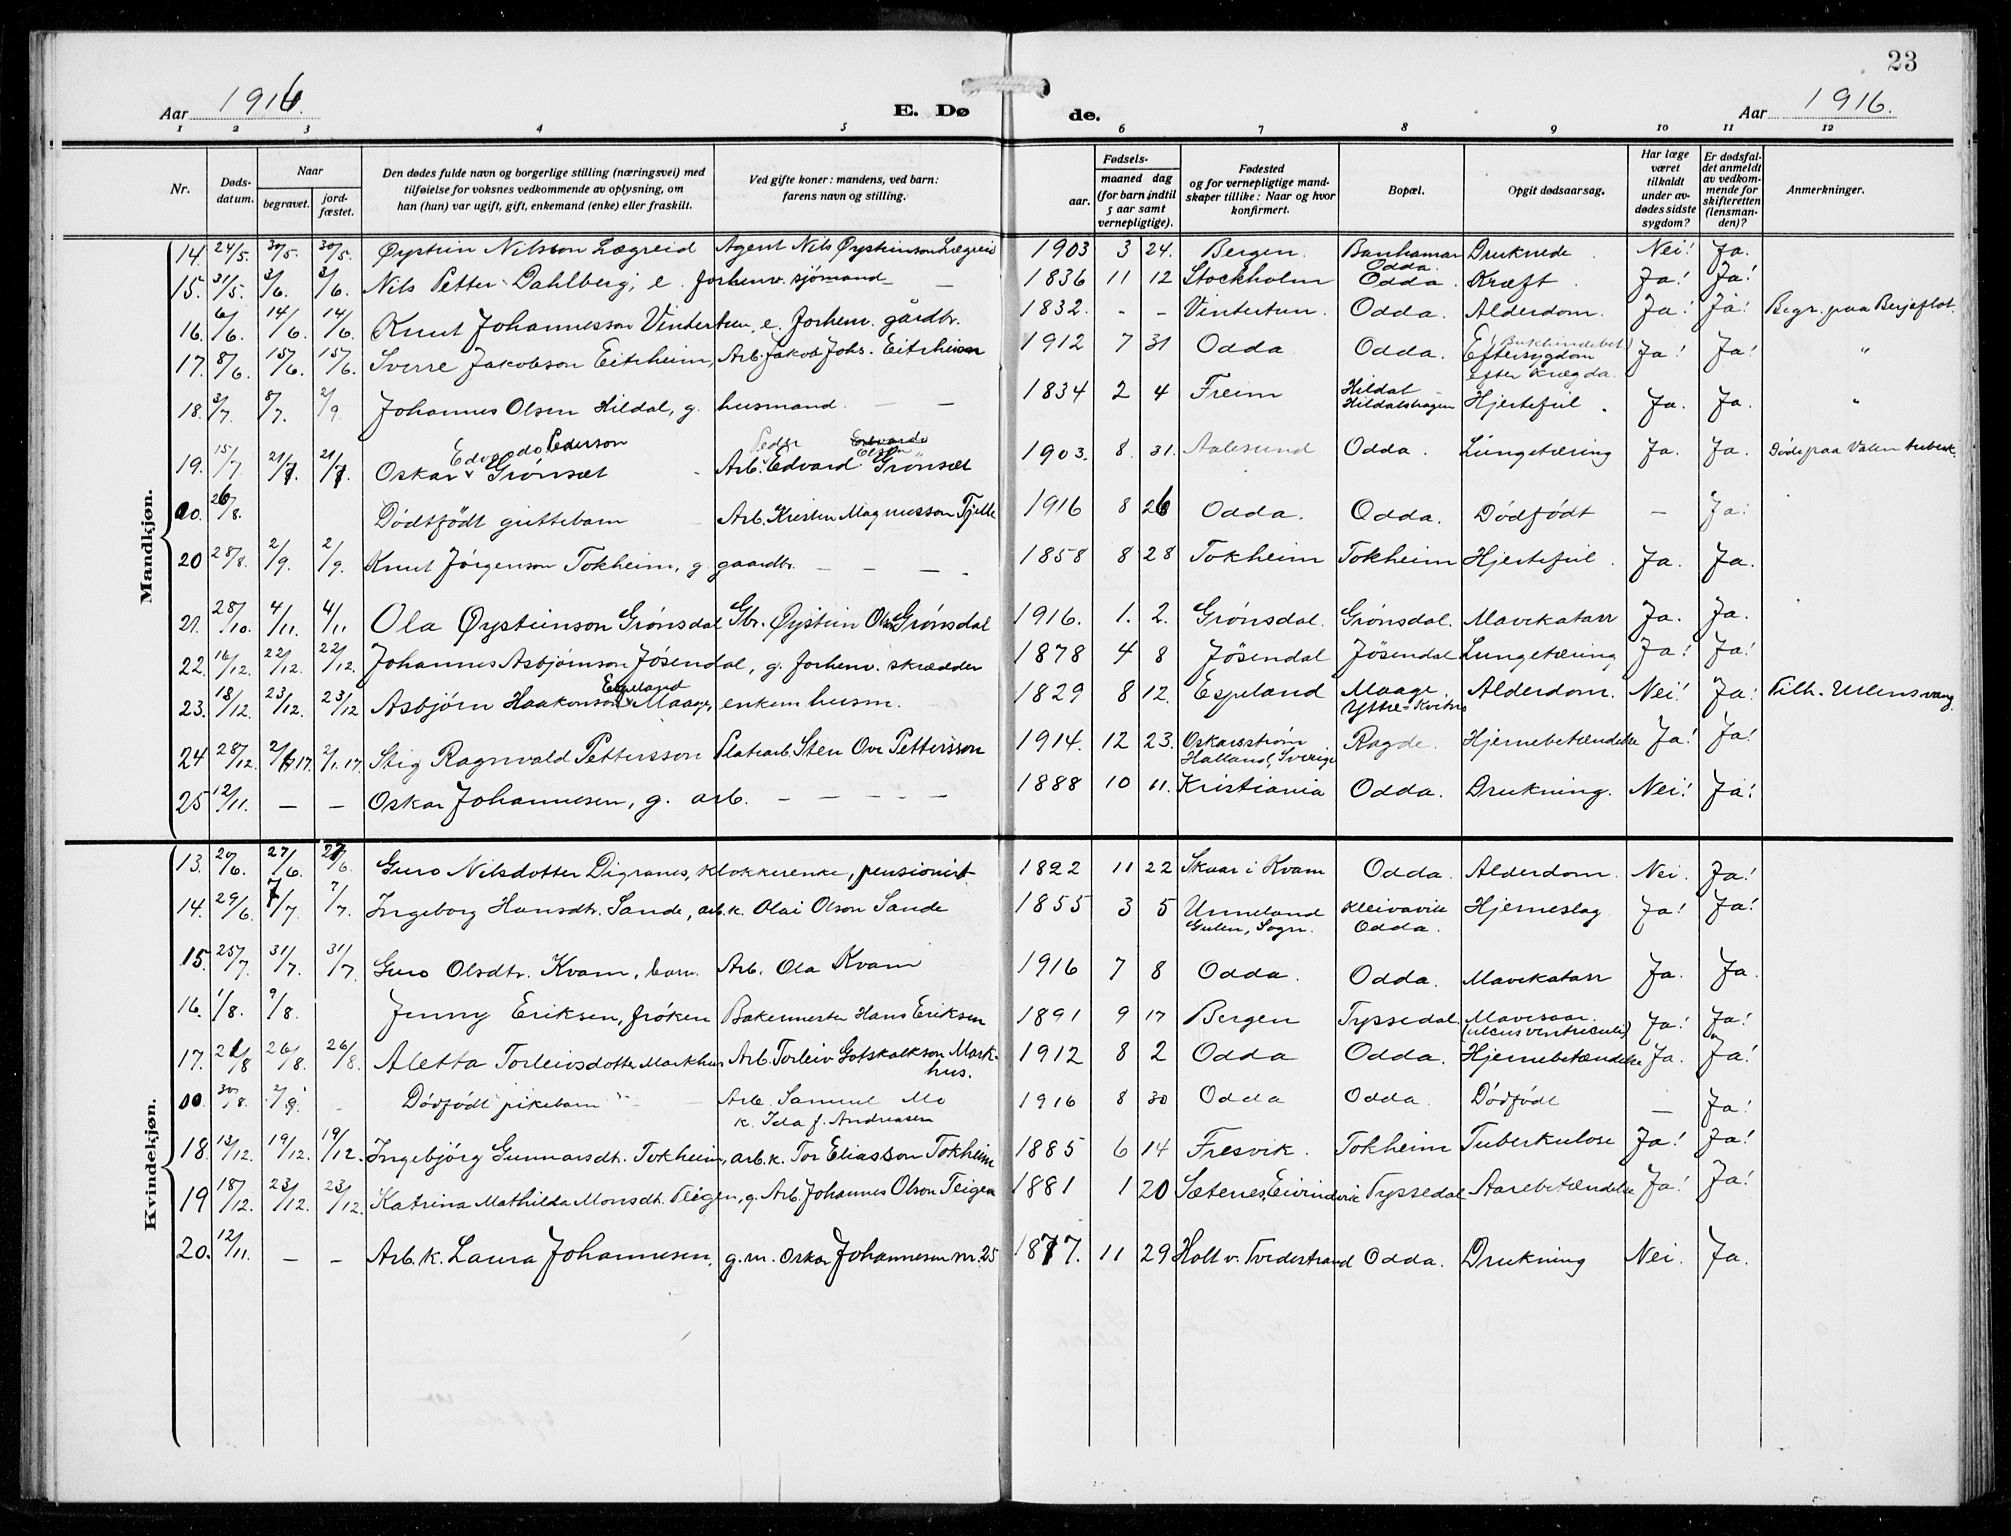 23
Aar 1916. E. Døde. Aar 1916.
1 2 3 4 5 6 7 8 9 10 11 12
Nr. | Døds-datum. | Naar begravet. | jord-fæstet. | Den dødes fulde navn og borgerlige stilling (næringsvei) med tilføielse for voksnes vedkommende av oplysning, om han (hun) var ugift, gift, enkemand (enke) eller fraskilt. | Ved gifte koner: mandens, ved barn: farens navn og stilling. | Fødsels- aar. | maaned dag (for barn indtil 5 aar samt vernepligtige). | Fødested og for vernepligtige mandskaper tillike: Naar og hvor konfirmert. | Bopæl. | Opgit dødsaarsag. | Har læge været tilkaldt under avdødes sidste sygdom? | Er dødsfaldet anmeldt av vedkommende for skifteretten (lensmanden)? | Anmerkninger.
Mandkjøn.
14. 24/5. 30/5. 30/5. Øystein Nilsson Lægreid Agent Nils Øysteinson Lægreid 1903 3 24. Bergen. Odda. Druknede. Nei! Ja.
15. 31/5. 3/6. 3/6. Nils Petter Dahlberg, e. forhenv. sjömand — 1836 11 12 Stockholm Odda. Kræft. Ja! Ja!
16. 6/6. 14/6. 14/6. Knut Johannesson Vintertun, e. forhenv. gårdbr. 1832. - - Vintertun. Odda. Alderdom. Ja! Ja! Begr. paa Berjeflot.
17. 8/6. 15/6. 15/6. Sverre Jakobson Eitrheim, Arb. Jakob Johs. Eitrheim 1912 7 31 Odda Odda. Eftersygdom efter kregda. (Bukhindebet.) Ja! Ja! "
18. 3/7. 8/7. 2/9 Johannes Olsen Hildal, g. husmand. — — 1834 2 4 Freim Hildal Hildalshagen Hjertefeil. Ja. Ja. "
19. 15/7. 21/7. 21/7. Oskar Edvard Pederson Grönsæt Arb. Peder Edvard Grönsæt 1903. 8. 31. Aalesund Odda. Lungetæring Ja. Ja. Döde paa Valen tuberk.
00. 26/8. Dödtfödt guttebarn Arb. Kristen Magnusson Tjelle 1916 8 26 Odda. Odda. Dödfödt — Ja!
20 28/8. 2/9. 2/9. Knut Jörgenson Tokheim, g. gaardbr. — — — 1858 8 28 Tokheim Tokheim Hjertefeil. Ja. Ja.
21. 28/10. 4/11. 4/11 Ola Øysteinson Grönsdal Gbr. Øystein Olson Grönsdal 1916. 1. 2. Grönsdal. Grönsdal. Mavekatarr Ja. Ja.
22. 16/12. 22/12. 22/12. Johannes Asbjörnson Jösendal, g. forhenv. skrædder 1878 4 8 Jösendal Jösendal Lungetæring Ja! Ja!
23. 18/12. 23/12. 23/12 Asbjörn Haakonson Espeland Maage, enkem. husm. 1829 8 12. Espeland Maage. Alderdom. Nei! Ja! Tilh. Ullensvang.
24 28/12. 2/1 17. 2/1. 17. Stig Ragnvald Pettersson Platearb. Sten Ove Pettersson 1914. 12 23. Oskarsström Halland, Sverige Ragde. Hjernebetændelse Ja! Ja!
25 12/11. — — Oskar Johannesen, g. arb. — — — — 1888 10 11. Kristiania Odda. Drukning. Nei! Ja!
Kvindekjøn.
13. 20/6. 27/6. 27/6 Guro Nilsdotter Digranes, klokkerenke, pensionist. 1822 11 22 Skaar i Kvam Odda. Alderdom. Nei. Ja!
14. 29/6. 7/7. 7/7. Ingeborg Hansdtr. Sande, arb.k. Olai Olson Sande 1855 3 5 Unneland Gulen, Sogn. Kleivavik Odda. Hjerneslag Ja! Ja!
15. 25/7. 31/7. 31/7. Guro Olsdtr. Kvam, barn. Arb. Ola Kvam 1916 7 8 Odda. Odda. Mavekatarr Ja. Ja.
16. 1/8. 9/8. Jenny Eriksen, fröken Bakermester Hans Eriksen 1891 9 17 Bergen Tyssedal Mavesaar. (ulcus ventriculi) Ja! Ja!
17. 21/8 26/8. 26/8. Aletta Torleivsdotter Markhus Arb. Torleiv Gotskalkson Markhus. 1912 8 2 Odda Odda. Hjernebetændelse Ja. Ja!
00. 30/8. 2/9. Dödfödt pikebarn Arb. Samuel Mo k. Ida f. Andreasen 1916 8 30 Odda Odda. Dödfödt — Ja!
18. 13/12. 19/12. 19/12. Ingebjörg Gunnarsdtr. Tokheim, arb.k. Tor Eliasson Tokheim 1885 6 14 Fresvik. Tokheim Tuberkulose Ja! Ja!
19 18/12. 23/12. 23/12. Katrina Mathilda Monsdtr. Teigen, g. Arb. Johannes Olson Teigen 1881 1 20 Sætenes, Eivindvik Tyssedal Aarebetændelse Ja! Ja!
20. 12/11. — — Arb. k. Laura Johannesen, g.m. Oskar Johannesen nr. 25 1877. 11 29 Holt v. Tvedestrand Odda. Drukning Nei. Ja.